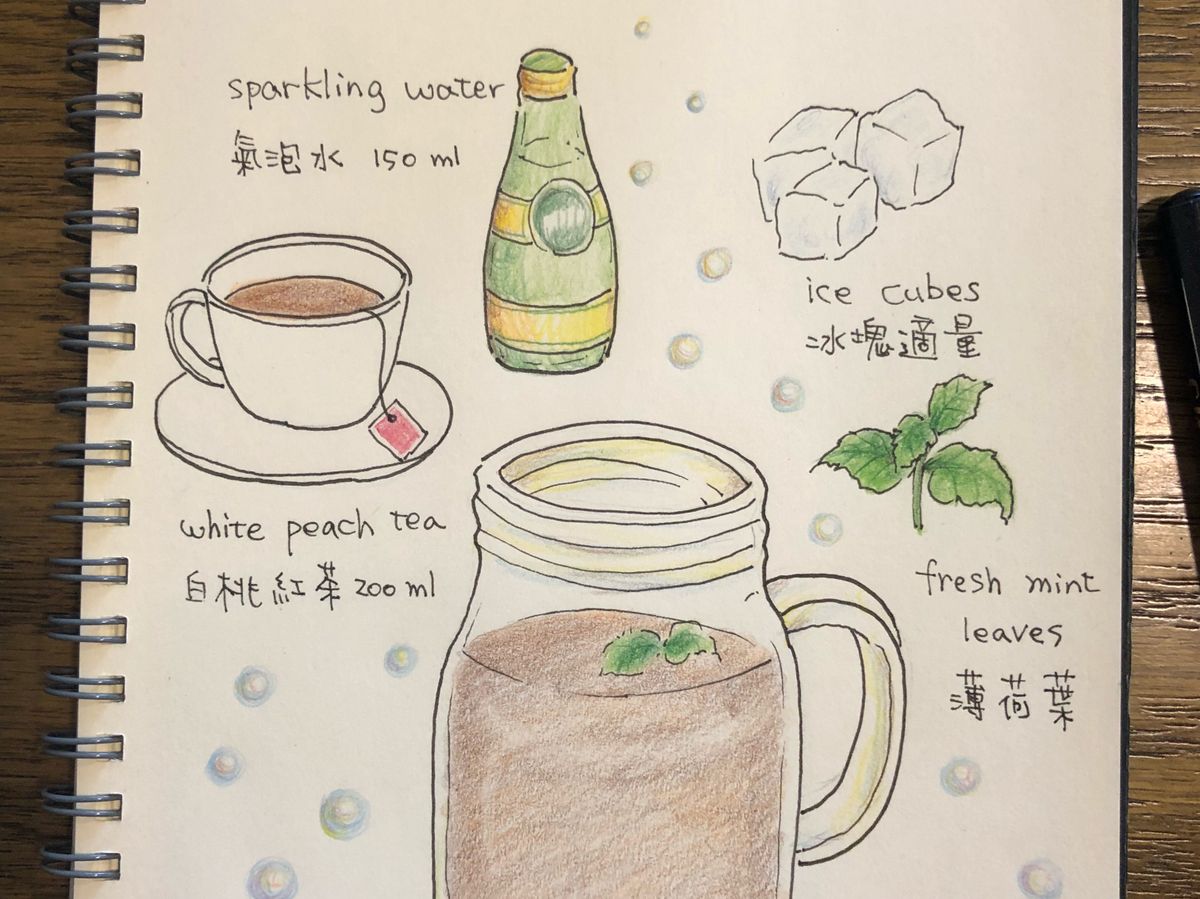 sparkling water
氣泡水 150 ml
ice cubes
冰塊適量
white peach tea
白桃紅茶 200 ml
fresh mint
leaves
薄荷葉